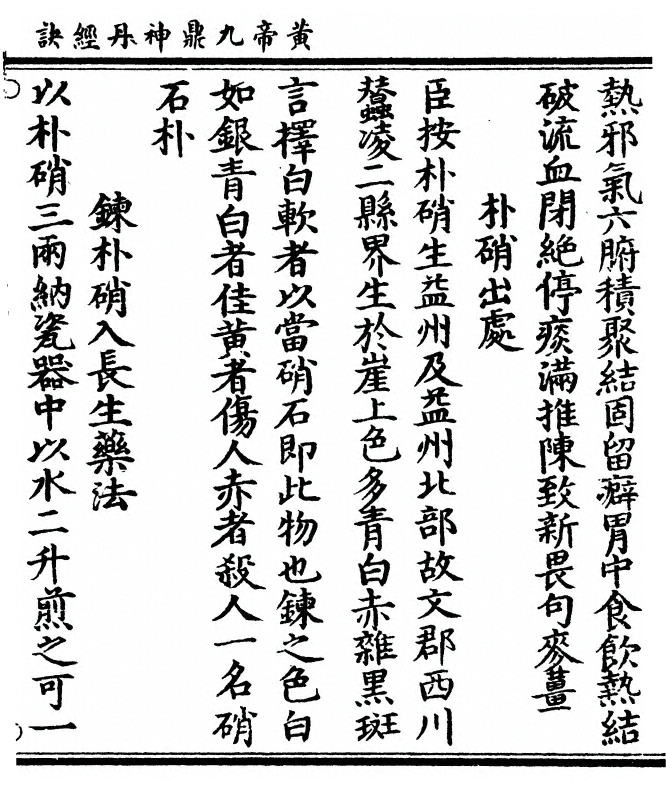 黃帝九鼎神丹經訣
熱邪氣六腑積聚結固留癖胃中食飲熱結
破流血閉絕停痰滿推陳致新畏句麥薑
朴硝出處
臣按朴硝生益州及益州北部故文郡西川
蠶凌二縣界生於崖上色多青白赤雜黑斑
言擇白軟者以當硝石即此物也鍊之色白
如銀青白者佳黃者傷人赤者殺人一名硝
石朴
鍊朴硝入長生藥法
以朴硝三兩納瓷器中以水二升煎之可一